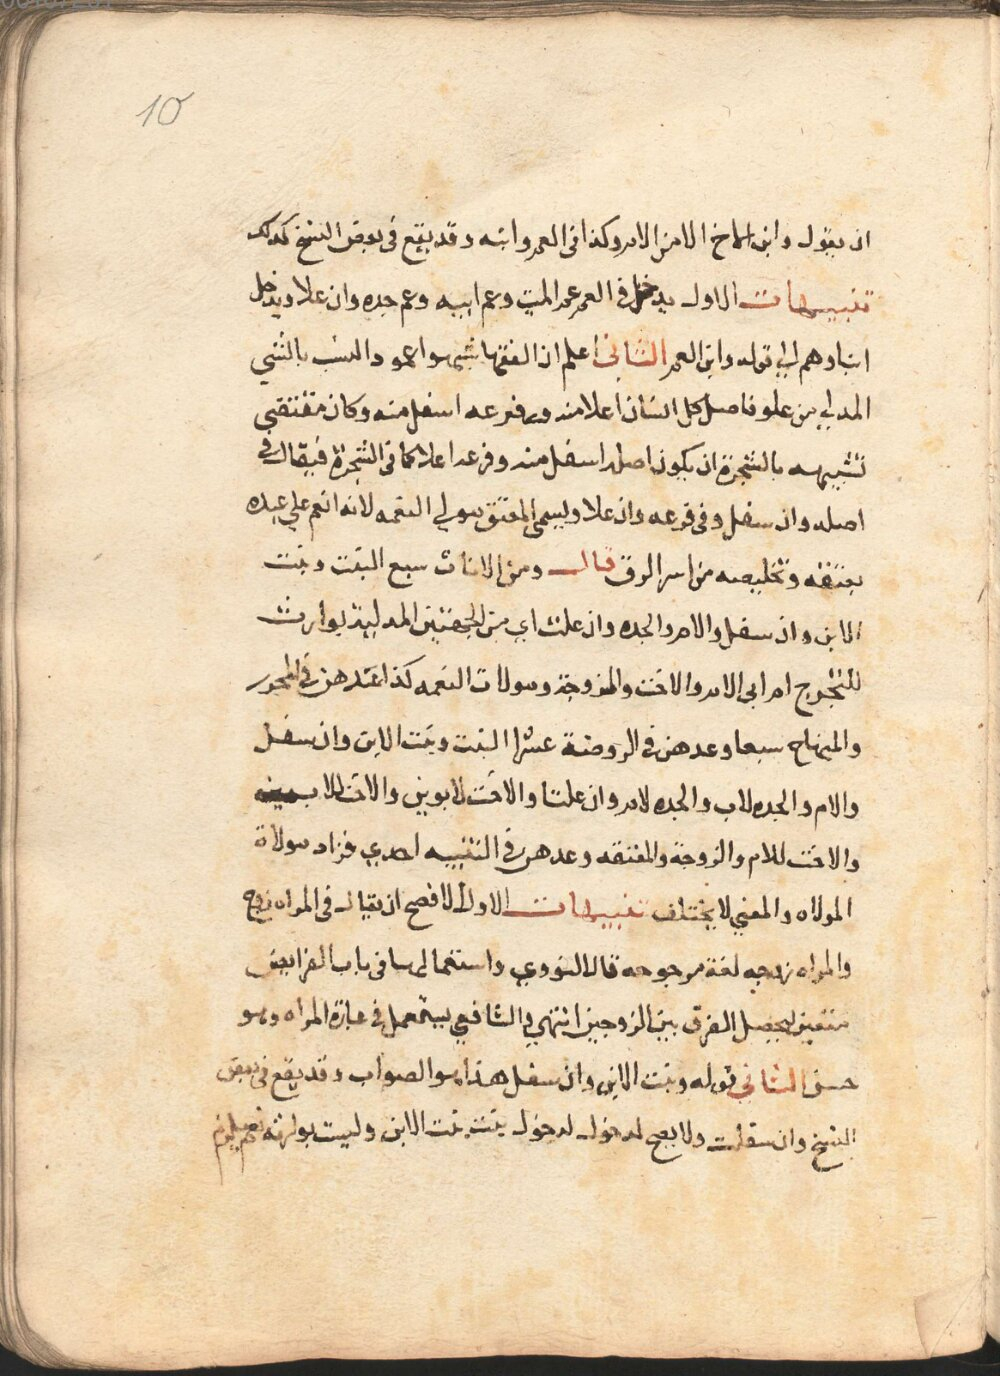 10
ان يقول وابن الاخ الا من الام وكذا في العم وابنه وقد يقع في بعض النسخ كذلك
تنبيهات الاول يدخل في العم عم الميت وعم ابيه وعم جده وان علا ويدخل
ابناوهم في قوله وابن العم الثاني اعلم ان الفقها شبهوا عمود النسب بالشي
المدلي من علو فاصل كل انسان اعلا منه وفرعه اسفل منه وكان مقتضي
تشبيهه بالشجرة ان يكون اصله اسفل منه وفرعه اعلا كما في الشجرة فيقال في
اصله وان سفل وفي فرعه وان علا ويسمي المعتق مولي النعمه لانه انعم علي عبده
بعتقه وتخليصه من اسر الرق قال ومن الاناث سبع البنت وبنت
الابن وان سفل والام والجده وان علت اي من الجهتين المدلية بوارث
لتخرج ام ابي الام والاخت والزوجة ومولات النعمه كذا عدهن في المحرر
والمنهاج سبعا وعدهن في الروضة عشرا البنت وبنت الابن وان سفل
والام والجده لاب والجده لام وان علتا والاخت لابوين والاخت للاب
والاخت للام والزوجة والمعتقه وعدهن في التنبيه احدي فزاد مولاة
المولاه والمعني لا يختلف تنبيهات الاول الافصح ان يقال في المراه زوج
والمراه زوجه لغة مرجوحه قال النووي واستعمالها في باب الفرايض
متعين ليحصل الفرق بين الزوجين انتهي والشافعي يستعمل في عبارة المراه وهو
حسن الثاني قوله وبنت الابن وان سفل هذا هو الصواب وقد يقع في بعض
النسخ وان سفلت ولا يصح لدخول لدخول بنت بنت الابن وليست بوارثه نعم يلزم